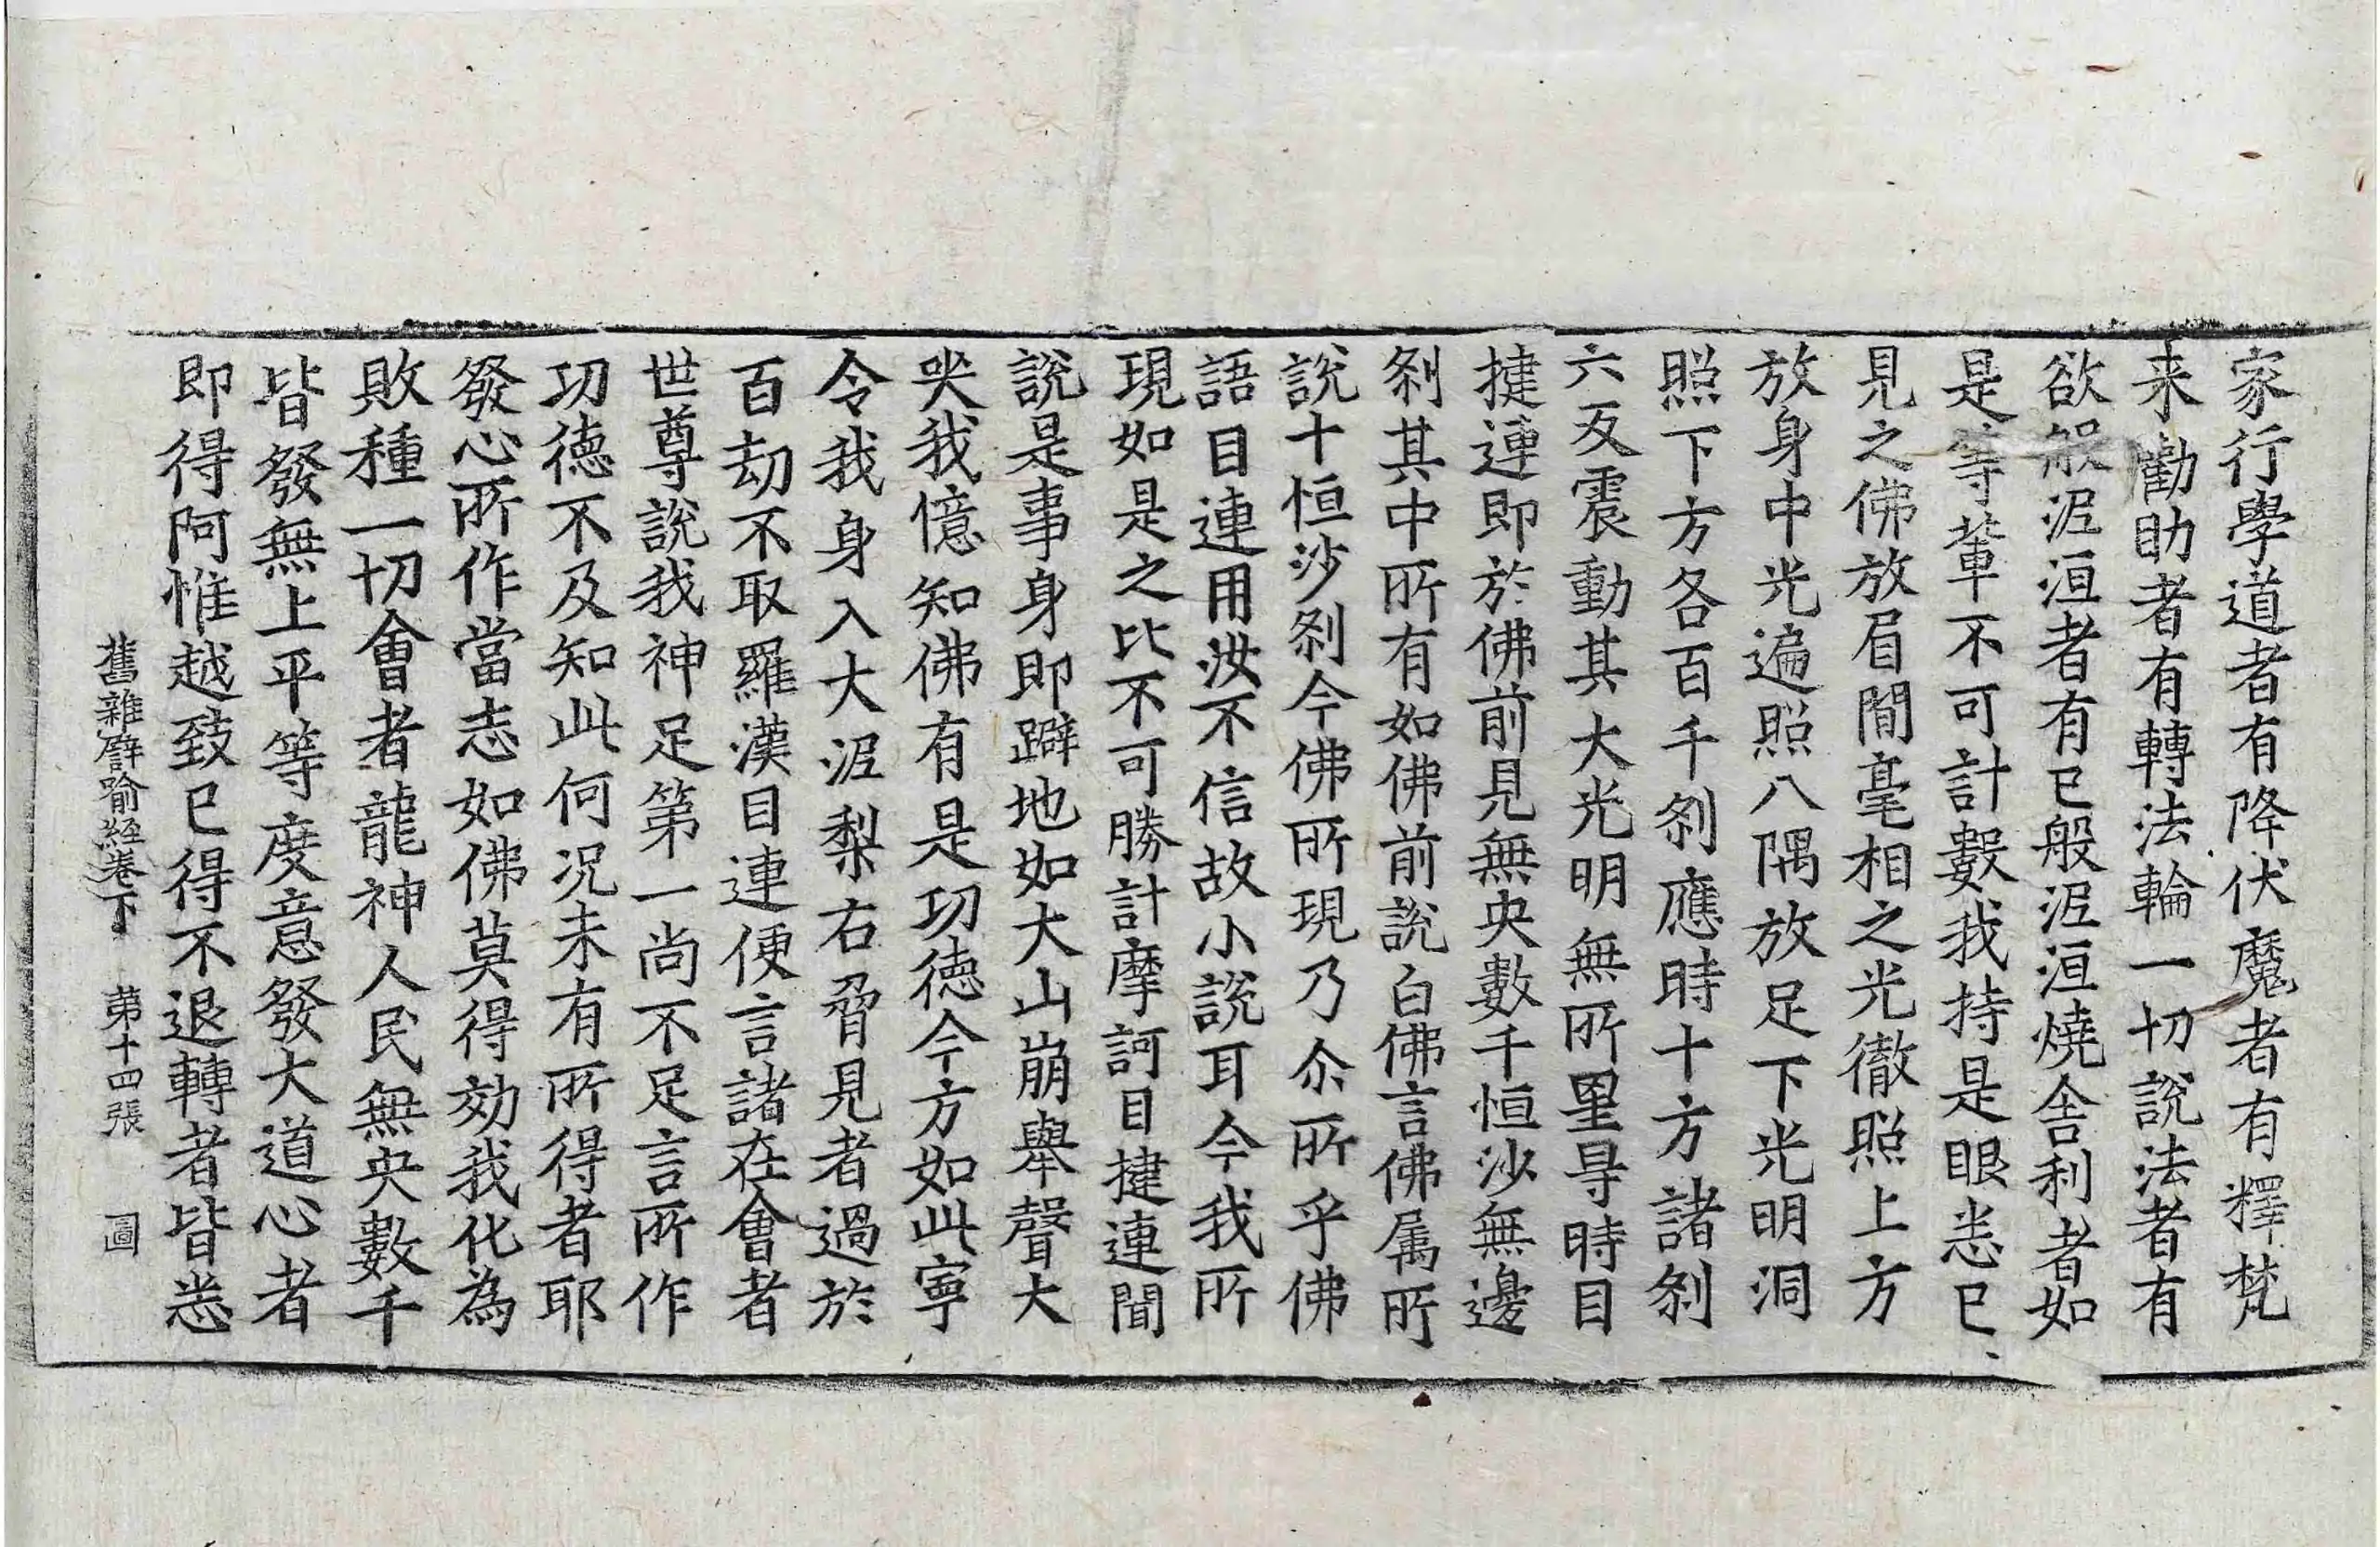 家行學道者有降伏魔者有釋梵
来勸助者有轉法輪一切說法者有
欲般泥洹者有已般泥洹燒舍利者如
是等輩不可計數我持是眼悉已
見之佛放眉間毫相之光徹照上方
放身中光遍照八隅放足下光明洞
照下方各百千刹應時十方諸刹
六反震動其大光明無所罣㝵時目
揵連即於佛前見無央數千恒沙無邊
刹其中所有如佛前說白佛言佛属所
說十恒沙刹今佛所現乃尒所乎佛
語目連用汝不信故小說耳今我所
現如是之比不可勝計摩訶目揵連聞
說是事身即躃地如大山崩舉聲大
哭我憶知佛有是功德今方如此寧
令我身入大泥犁右脅見者過於
百劫不取羅漢目連便言諸在會者
世尊說我神足第一尚不足言所作
功德不及知此何況未有所得者耶
發心所作當志如佛莫得効我化為
敗種一切會者龍神人民無央數千
皆發無上平等度意發大道心者
即得阿惟越致已得不退轉者皆悉
舊雜譬喻經卷下　第十四張　圖